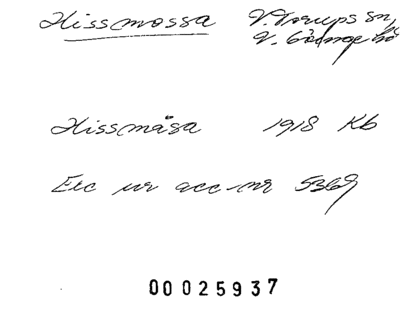 Hissmossa V. Torups sn,
V. Göinge hd
Hissmåsa 1918 Kb
Exc ur acc nr 5369
00025937